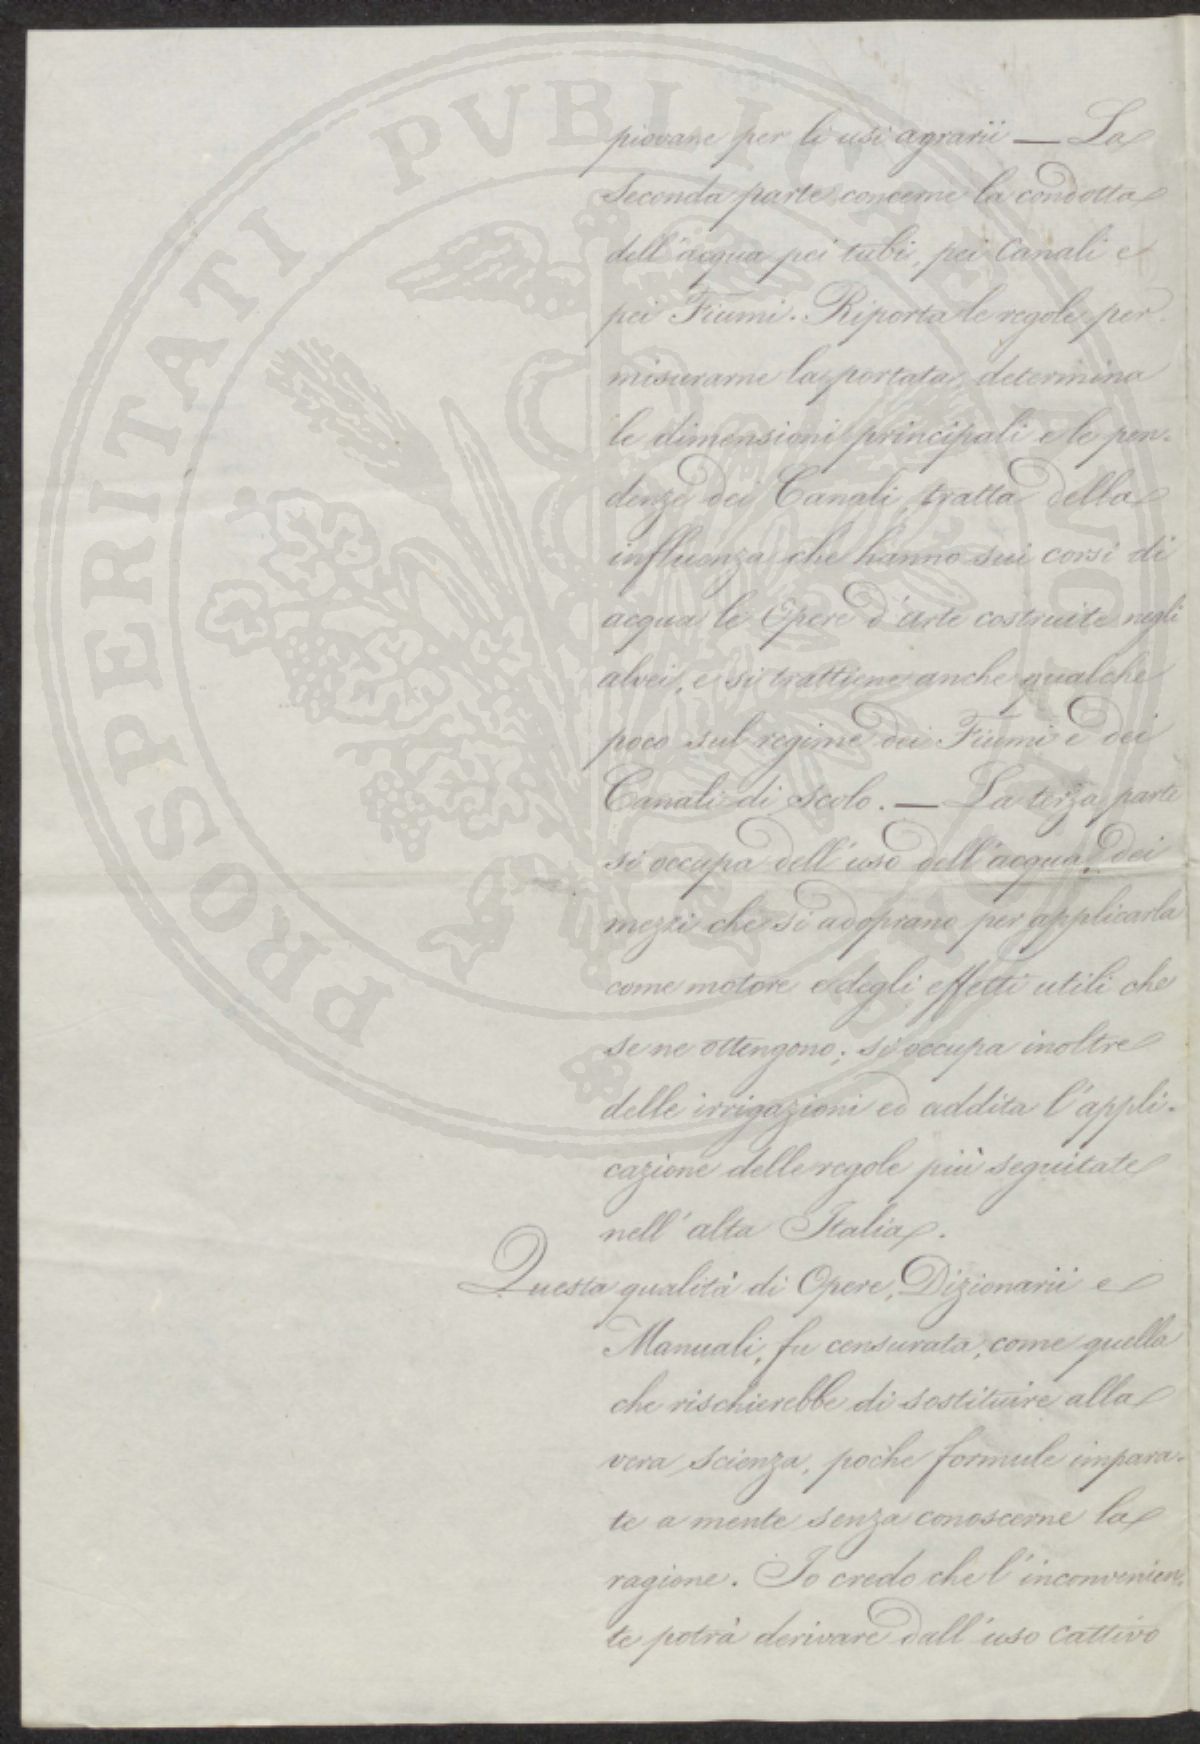 piovane per li usi agrarii — La
seconda parte concerne la condotta
dell'acqua pei tubi, pei Canali e
pei Fiumi. Riporta le regole per
misurarne la portata, determina
le dimensioni principali e le pen-
denze dei Canali, tratta della
influenza che hanno sui corsi di
acqua le Opere d'arte costruite negli
alvei, e si trattiene anche qualche
poco sul regime dei Fiumi e dei
Canali di scolo. — La terza parte
si occupa dell'uso dell'acqua, dei
mezzi che si adoprano per applicarla
come motore e degli effetti utili che
se ne ottengono; si occupa inoltre
delle irrigazioni ed addita l'appli-
cazione delle regole più seguitate
nell'alta Italia.
Questa qualità di Opere, Dizionarii e
Manuali, fu censurata, come quella
che rischierebbe di sostituire alla
vera scienza, poche formule impara-
te a mente senza conoscerne la
ragione. Io credo che l'inconvenien-
te potrà derivare dall'uso cattivo
PROSPERITATI PVBLICAE